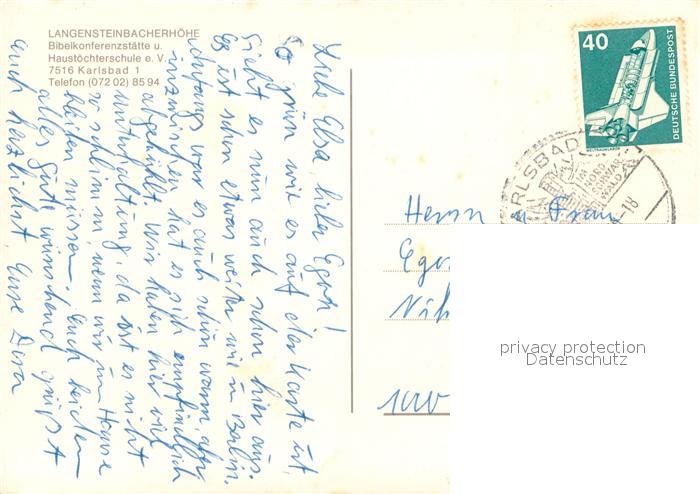 LANGENSTEINBACHERHÖHE
Bibelkonferenzstätte u.
Haustöchterschule e. V.
7516 Karlsbad 1
Telefon (072 02) 85 94
Liebe Elsa, lieber Egon!
So grün wie es auf der Karte ist,
sieht es nun auch schon hier aus.
Es ist schon etwas weiter wie in Berlin.
Anfangs war es auch schön warm, aber
inzwischen hat es sich empfindlich
abgekühlt. Wir haben hier viel
Unterhaltung, da ist es nicht
so schlimm, wenn wir im Hause
bleiben müssen. Euch beiden
alles Gute wünschend grüßt
Euch herzlichst Eure
40
DEUTSCHE BUNDESPOST
WELTRAUMLABOR
KARLSBAD
IM
NORD
SCHWARZ
WALD
-18
Herrn u. Frau
privacy protection
Datenschutz